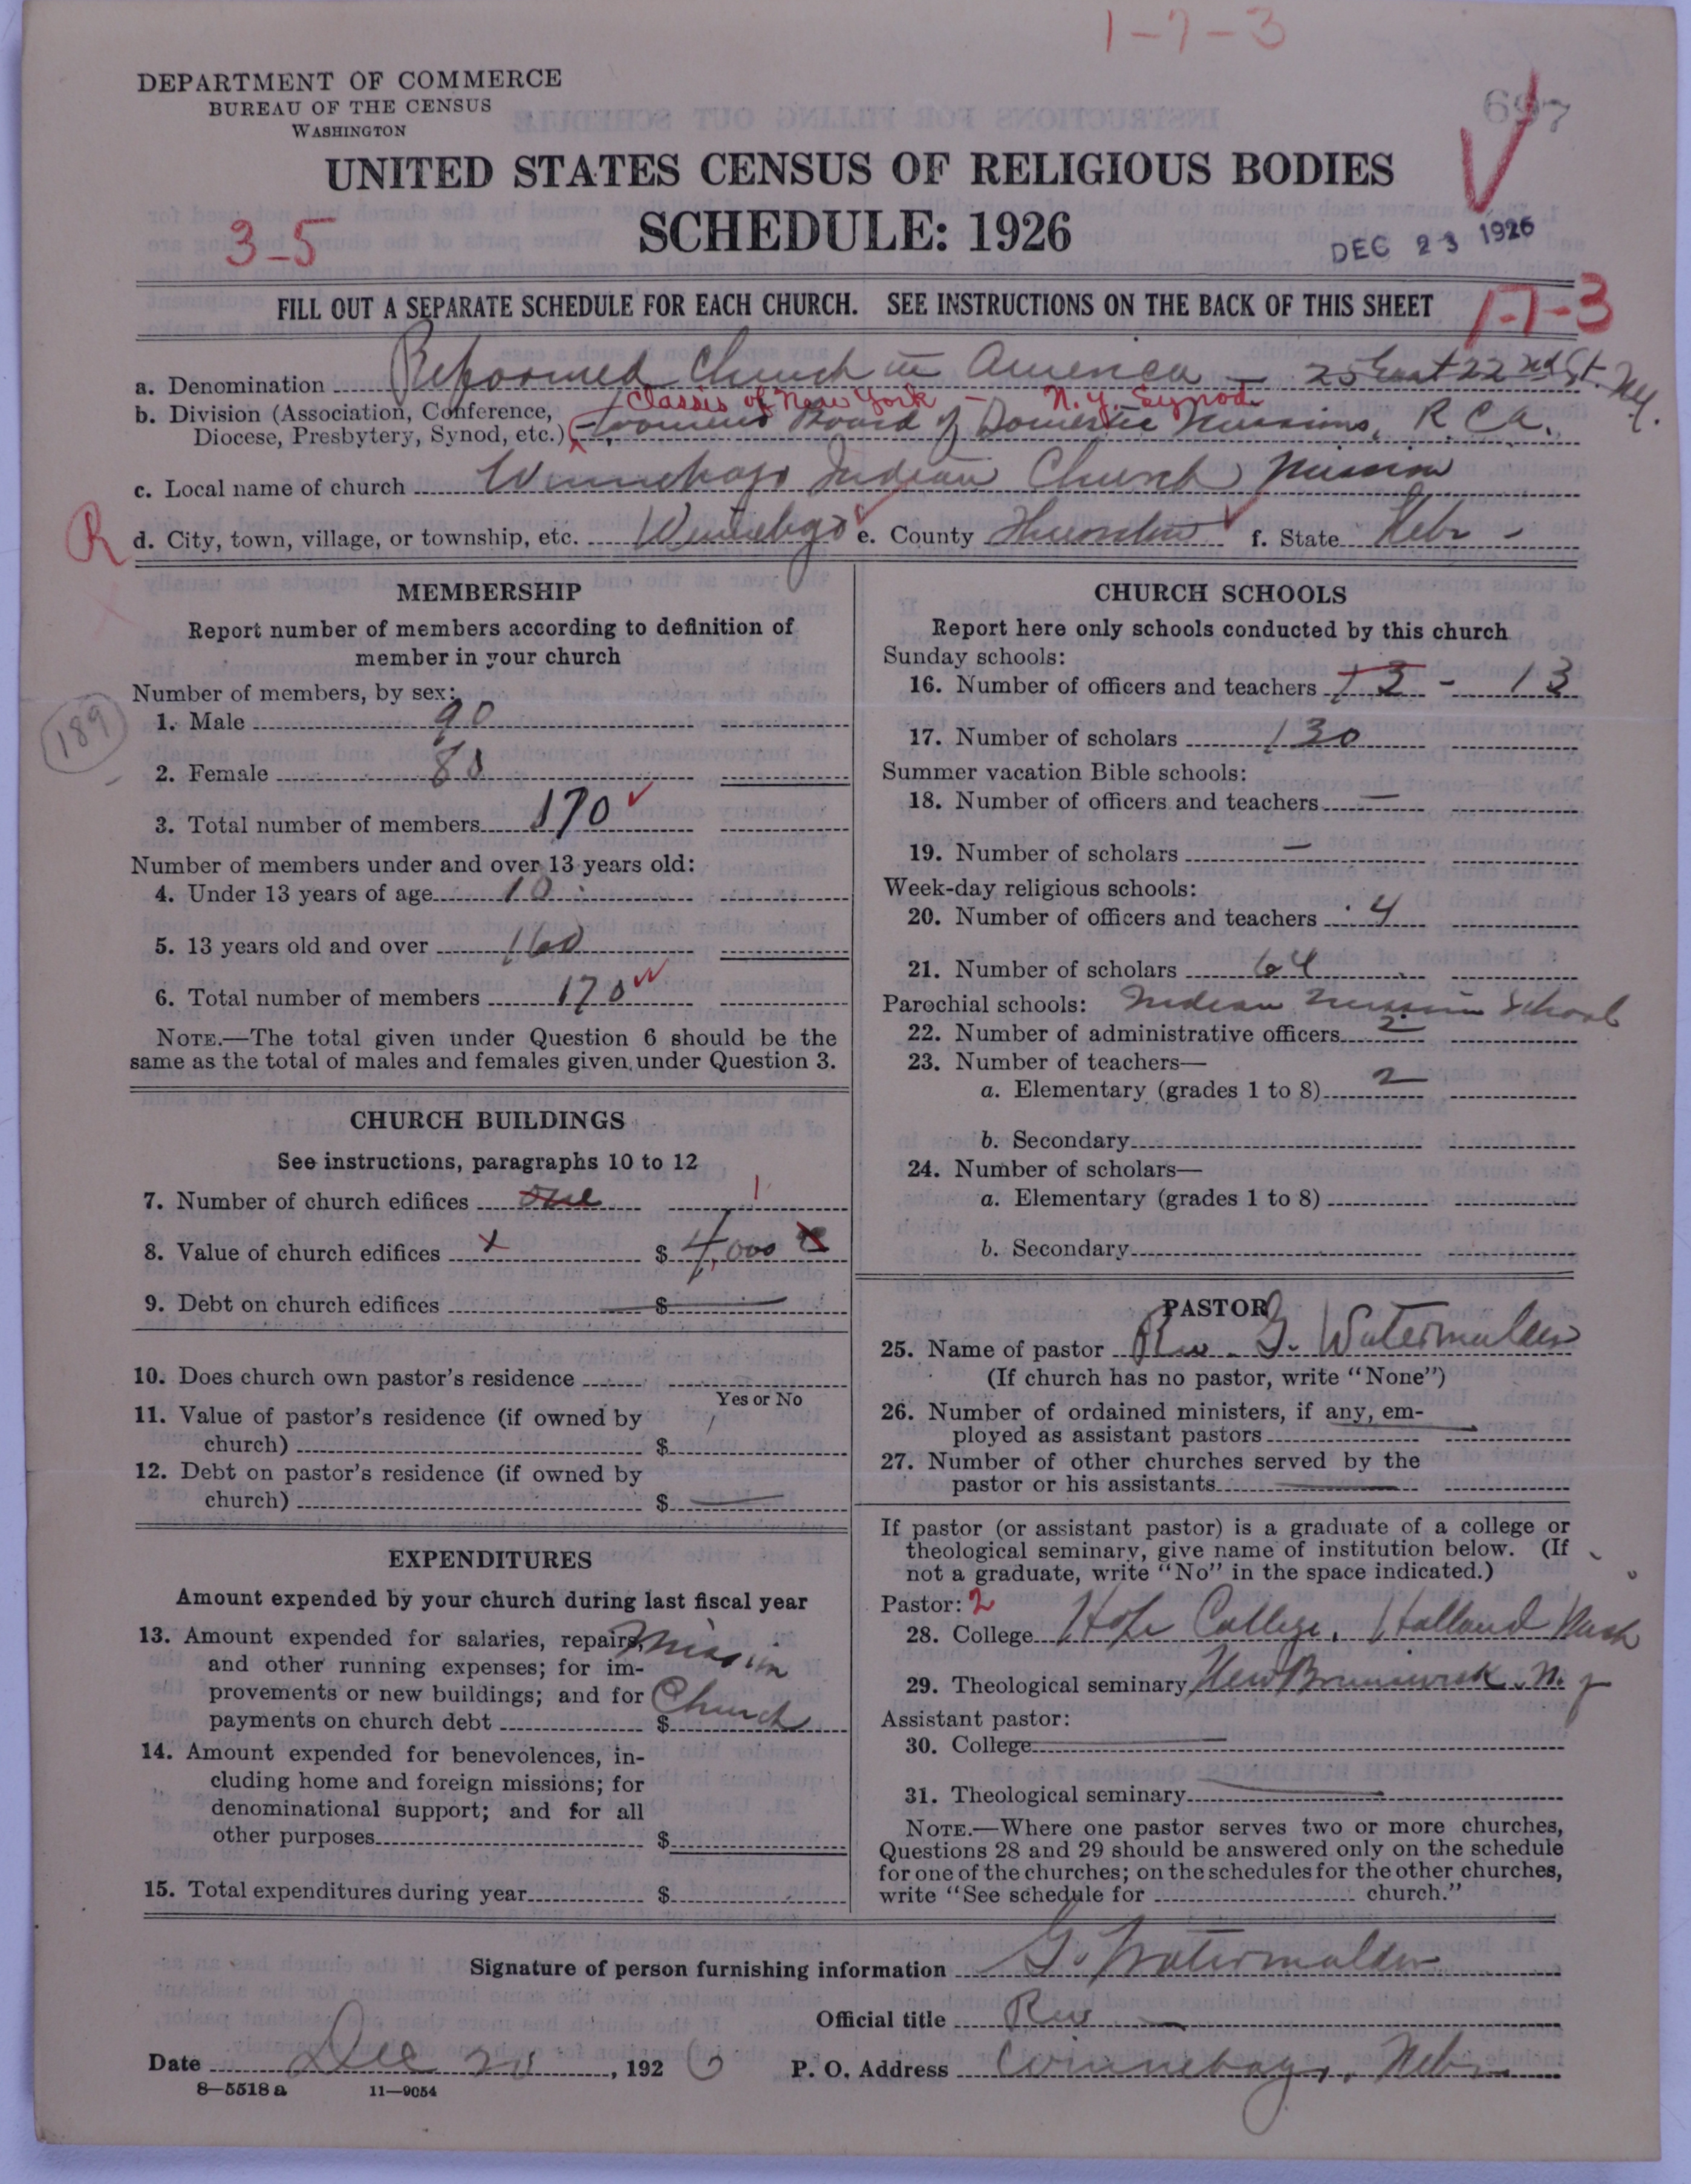 1-7-3
DEPARTMENT OF COMMERCE
BUREAU OF THE CENSUS
WASHINGTON
697
UNITED STATES CENSUS OF RELIGIOUS BODIES
SCHEDULE: 1926
3-5
DEC 23 1926
FILL OUT A SEPARATE SCHEDULE FOR EACH CHURCH. SEE INSTRUCTIONS ON THE BACK OF THIS SHEET
1-7-3
a. Denomination Reformed Church in America - 25 East 22nd St. N.Y.
Classis of New York - N.Y. Synod
b. Division (Association, Conference, Diocese, Presbytery, Synod, etc.) Womens Board of Domestic Missions, R C A.
c. Local name of church Winnebago Indian Church Mission
R
d. City, town, village, or township, etc. Winnebago e. County Thurston f. State Nebr -
MEMBERSHIP
Report number of members according to definition of
member in your church
Number of members, by sex:
189
1. Male 90
2. Female 80
3. Total number of members 170
Number of members under and over 13 years old:
4. Under 13 years of age 10
5. 13 years old and over 160
6. Total number of members 170
NOTE.—The total given under Question 6 should be the
same as the total of males and females given under Question 3.
CHURCH BUILDINGS
See instructions, paragraphs 10 to 12
7. Number of church edifices one 1
8. Value of church edifices x $ 4,000
9. Debt on church edifices $ —
10. Does church own pastor's residence
Yes or No
11. Value of pastor's residence (if owned by
church) $
12. Debt on pastor's residence (if owned by
church) $ —
EXPENDITURES
Amount expended by your church during last fiscal year
13. Amount expended for salaries, repairs, Mission
and other running expenses; for im-
provements or new buildings; and for Church
payments on church debt $
14. Amount expended for benevolences, in-
cluding home and foreign missions; for
denominational support; and for all
other purposes $
15. Total expenditures during year $
CHURCH SCHOOLS
Report here only schools conducted by this church
Sunday schools:
16. Number of officers and teachers 13 - 13
17. Number of scholars 130
Summer vacation Bible schools:
18. Number of officers and teachers —
19. Number of scholars —
Week-day religious schools:
20. Number of officers and teachers 4
21. Number of scholars 64
Parochial schools: Indian Mission School
22. Number of administrative officers 2
23. Number of teachers—
a. Elementary (grades 1 to 8) 2
b. Secondary
24. Number of scholars—
a. Elementary (grades 1 to 8)
b. Secondary
PASTOR
25. Name of pastor Rev. G. Watermulder
(If church has no pastor, write "None")
26. Number of ordained ministers, if any, em-
ployed as assistant pastors —
27. Number of other churches served by the
pastor or his assistants —
If pastor (or assistant pastor) is a graduate of a college or
theological seminary, give name of institution below. (If
not a graduate, write "No" in the space indicated.)
Pastor: 2
28. College Hope College, Holland Mich
29. Theological seminary New Brunswick, N. J
Assistant pastor:
30. College —
31. Theological seminary —
NOTE.—Where one pastor serves two or more churches,
Questions 28 and 29 should be answered only on the schedule
for one of the churches; on the schedules for the other churches,
write "See schedule for church."
Signature of person furnishing information G. Watermulder
Official title Rev —
Date Dec 20, 1926 P. O. Address Winnebago, Nebr
8—5518 a 11—9054